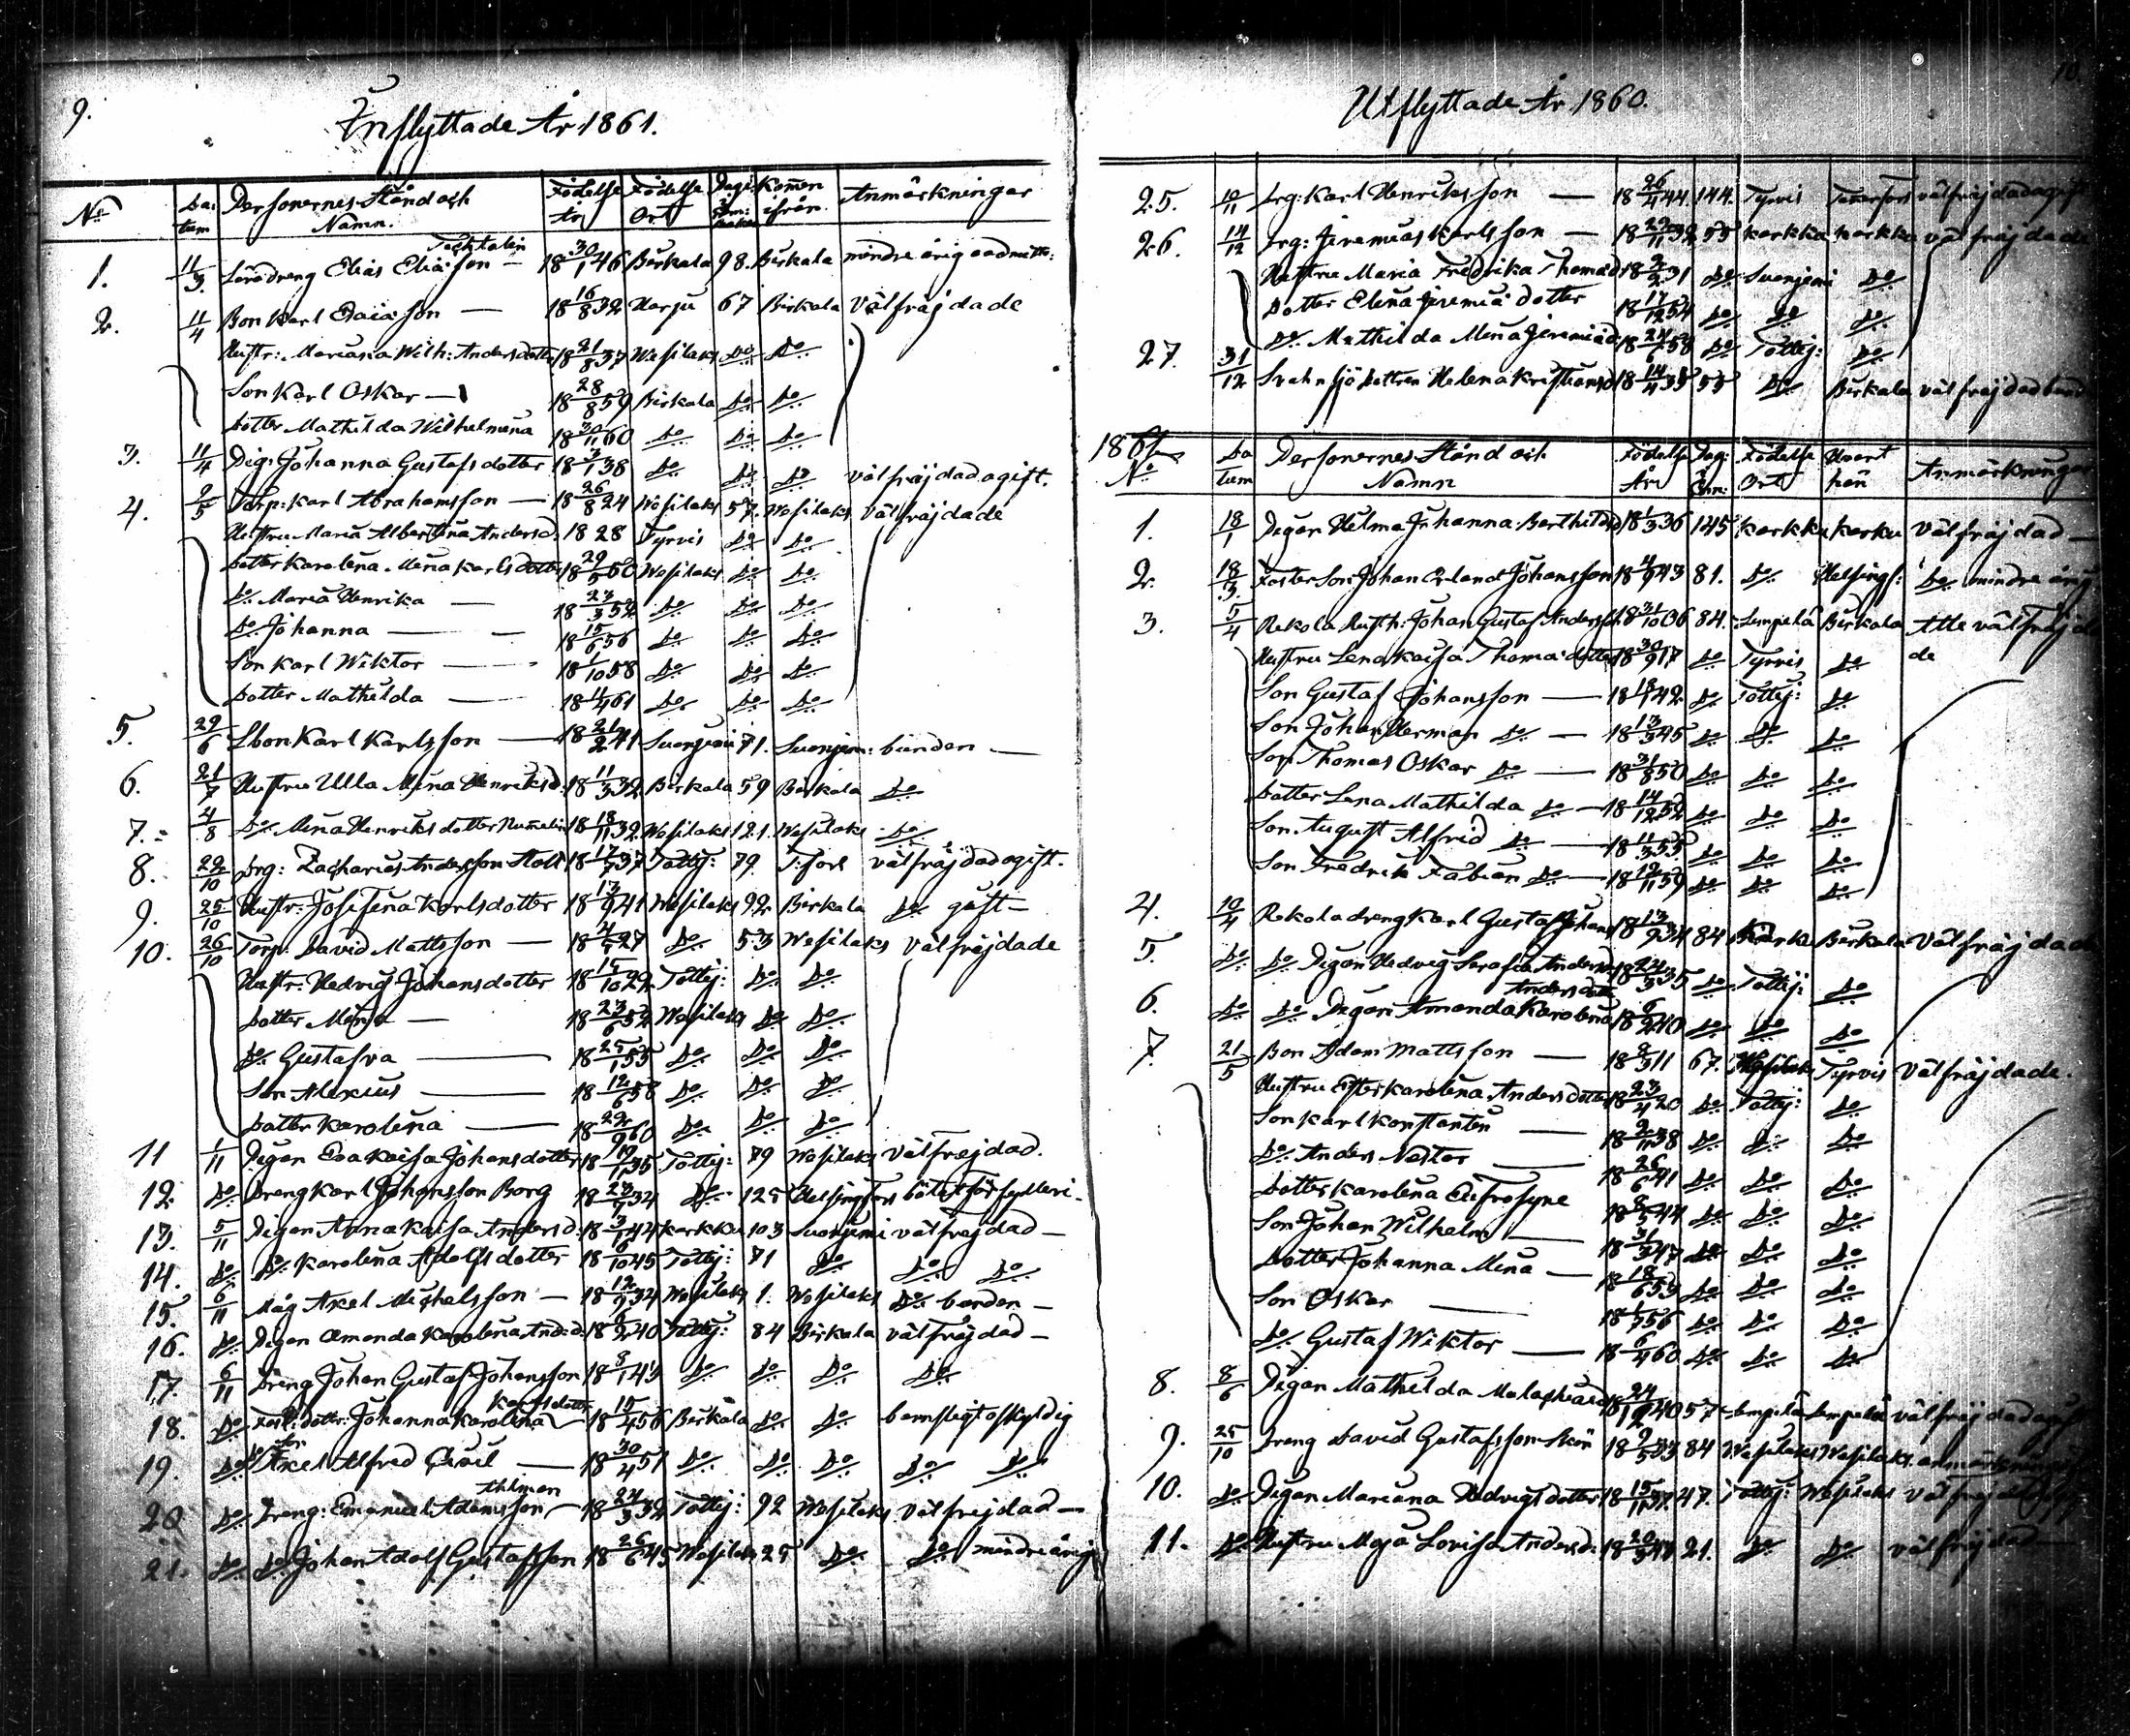 9.
Inflyttade År 1861.
No Da: tum Personernes Stånd och Namn. Födelse År Födelse Ort Pagi: Kommen ifrån Anmärkningar
1. 11/3 Elias Eliasson — 18 30/1 46 Birkala 98. Birkala mindre årig
2. 11/4 Bon Karl Esaiasson — 18 16/8 32 Harju 67 Birkala välfräjdade
Hustr: Mariana Wilh: Andersdotter 18 21/8 37 Wesilaks Do Do
Son Karl Oskar — 18 28/8 59 Birkala Do Do
Dotter Mathilda Wilhelmina 18 30/11 60 Do Do Do
3. 11/4 Pig: Johanna Gustafsdotter 18 3/1 38 Do Do Do välfräjdad ogift.
4. 2/5 Torp: Karl Abrahamsson — 18 26/8 24 Wesilaks 57. Wesilaks välfräjdade
Hustru Maria Albertina Andersd. 1828 Tyrvis Do Do
Dotter Karolina Mina Karlsdotter 18 29/5 50 Wesilaks Do Do
Do Maria Henrika — 18 23/3 52 Do Do Do
Do Johanna — 18 15/6 56 Do Do Do
Son Karl Wiktor — 18 1/10 58 Do Do Do
Dotter Mathilda — 18 1/4 61 Do Do Do
5. 29/6 Karl Karlsson — 18 21/2 41 Suonjemi 71. Suonjem: bunden —
6. 21/7 Hustru Ulla Mina Henriksd. 18 11/3 32 Birkala 59 Birkala Do
7. 4/8 Do Mina Henriksdotter Nummelin 18 18/11 32 Wesilaks 121. Wesilaks Do
8. 22/10 Drg: Zacharias Andersson 18 17/7 37 Tottij: 79. T:fors välfräjdad ogift.
9. 25/10 Hustr: Josefina Karlsdotter 18 13/9 41 Wesilaks 92. Birkala Do gift —
10. 26/10 Torp: David Mattsson — 18 4/7 27 Do 53 Wesilaks välfräjdade
Hustr: Hedvig Johansdotter 18 15/10 22 Tottij: Do Do
Dotter Mina — 18 23/6 52 Wesilaks Do Do
Do Gustafva — 18 25/1 55 Do Do Do
Son Alexius — 18 12/6 58 Do Do Do
Dotter Karolina — 18 22/9 60 Do Do Do
11 1/11 Pigan Eva Kaisa Johansdotter 18 19/1 35 Tottij: 79 Wesilaks välfrejdad.
12 Do Dreng Karl Johansson Borg 18 23/7 34 Do 125 Helsingfors bötat för fylleri.
13. 5/11 Pigan Anna Kaisa Andersd: 18 3/1 44 Karkku 103 Suonjemi välfrejdad —
14. Do Do Karolina Adolfsdotter 18 6/10 45 Tottij: 71 Do Do Do
15. 6/11 Måg Axel Michelsson — 18 12/7 34 Wesilaks 1. Wesilaks Do bunden —
16. Do Pigan Amanda Karolina Andsd. 18 6/2 40 Tottij: 84 Birkala välfräjdad —
17. 6/11 Dreng Johan Gustaf Johansson 18 8/1 43 Do Do Do Do
18. Do Fost: dotter: Johanna Karolina Karlsdotter 18 15/4 56 Birkala Do Do oskyldig
19. Do Do Son Axel Alfred — 18 30/4 51 Do Do Do Do Do
20 Do Dreng: Emanuel Adamsson Ahlman 18 24/3 32 Tottij: 92 Wesilaks välfrejdad —
21. Do Do Johan Adolf Gustafsson 18 26/6 45 Wesilaks 25 Do Do mindre årig
10.
Utflyttade År 1860.
25. 10/11 Drg: Karl Henriksson — 18 26/4 44. 144. Tyrvis välfräjdad ogift
26. 14/12 Drg: Jeremias Karlsson — 18 22/11 32 55 Karkku Karkku välfräjdade
Hustru Maria Fredrika Thomasd. 18 2/2 31 Do Suonjemi Do
Dotter Elina Jeremiædotter 18 17/12 54 Do Do Do
Do Mathilda Mina Jeremiæd. 18 24/6 58 Do Tottij: Do
27. 31/12 Helena Kristiansd. 18 14/4 35 55 Do Birkala välfräjdad
1861
No Da tum Personernes Stånd och Namn Födelse År Pag: Födelse Ort Hvart hän Anmärkningar
1. 18/1 Pigan Hilma Johanna Berthilsd. 18 1/3 36 145 Karkku Karku Välfräjdad —
2. 18/3 Foster Son: Johan Erland Johansson 18 4/9 43 81. Do Helsingf: Do mindre årig
3. 5/4 Rekola Johan Gustaf Andersson 18 31/10 06 84. Lempelä Birkala Alle välfräjdade
Hustru Lena Kaisa Thomædotter 18 30/9 17 Do Tyrvis Do
Son Gustaf Johansson — 18 42 Do Tottij: Do
Son Johan Herman Do — 18 13/3 45 Do Do Do
Son Thomas Oskar Do — 18 31/8 50 Do Do Do
Dotter Lena Mathilda Do — 18 14/12 52 Do Do Do
Son August Alfrid Do — 18 11/3 55 Do Do Do
Son Fredrik Fabian Do — 18 12/11 59 Do Do Do
4. 10/4 Rekola dreng Karl Gustaf 18 13/9 34 84 Birkala välfräjdade
5. Do Do Pigan Hedvig Serafia Andersd. 18 24/3 35 Do Tottij: Do
6. Do Do Pigan Amanda Karolina Andersdott. 18 6/2 40 Do Do Do
7. 21/5 Bon Adam Mattsson — 18 8/3 11 67. Wesilaks Tyrvis Välfräjdade.
Hustru Ester Karolina Andersdotter 18 23/4 20 Do Tottij: Do
Son Karl Konstantin — 18 2/11 38 Do Do Do
Do Anders Nestor — 18 26/6 41 Do Do Do
Dotter Karolina Eufrosyne 18 8/5 44 Do Do Do
Son Johan Wilhelm — 18 31/3 47 Do Do Do
Dotter Johanna Mina — 18 18/6 53 Do Do Do
Son Oskar — 18 1/7 56 Do Do Do
Do Gustaf Wiktor — 18 6/4 60 Do Do Do
8. 8/6 Pigan Mathilda 18 24/12 40 57 Lempelä Lempelä välfräjdad ogift
9. 25/10 Dreng David Gustafsson 18 9/5 33 84 Wesilaks Wesilaks
10. Do Pigan Mariana Hedvigsdotter 18 15/11 37 47. Tottij: Wesilaks välfrejdad
11. Do Hustru Maja Lovisa Andersd: 18 20/3 21. Do Do välfräjdad